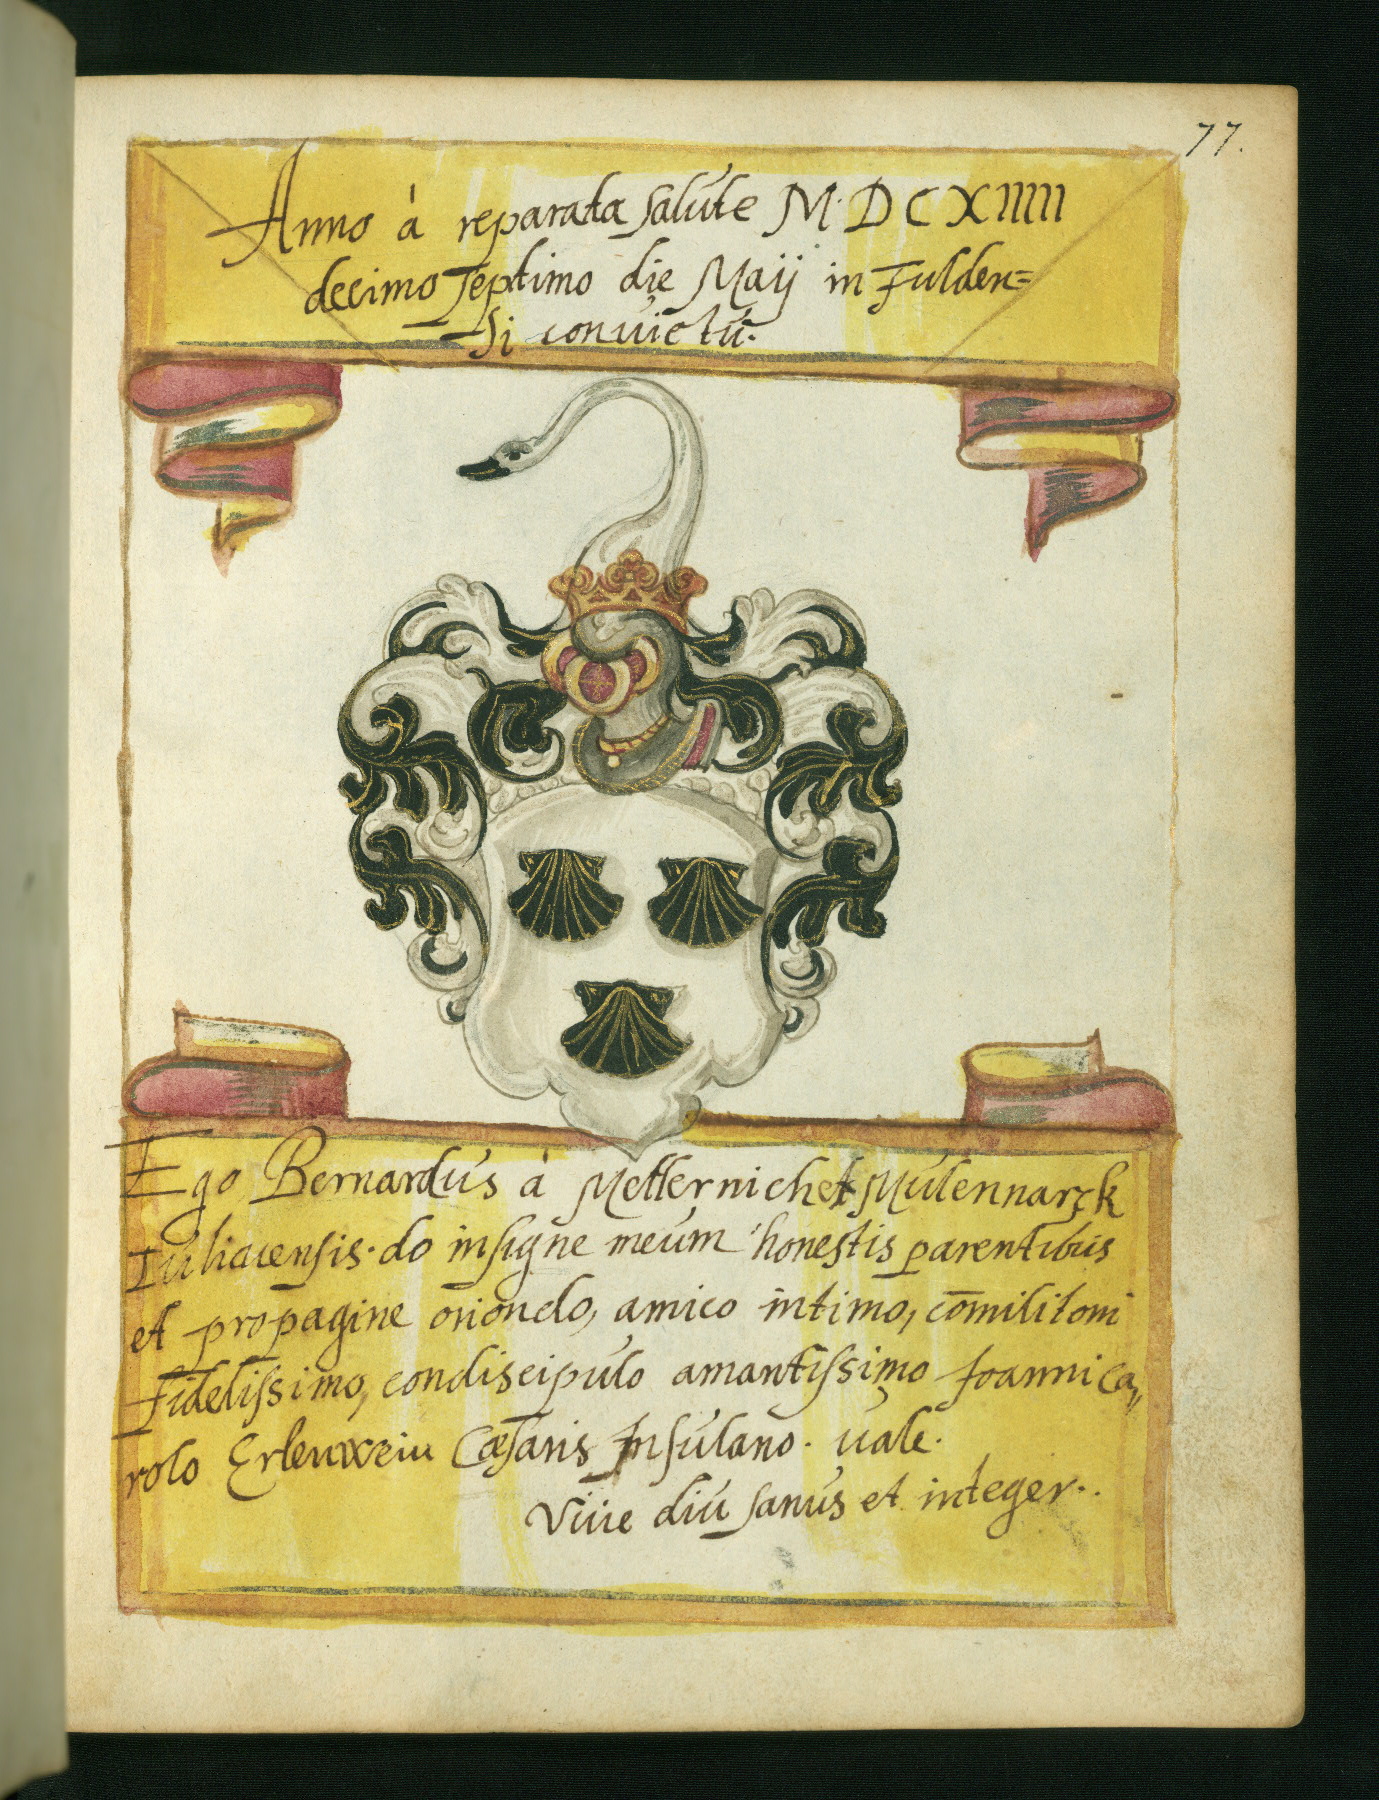 77.
Anno à reparata salute M·DCXIIIII
decimo septimo die Maij in Fulden=
si convictū.
Ego Bernardus à Metternich et Mulennarck
Iuliacensis. do insigne meum honestis parentibus
et propagine oriondo, amico intimo, com̄ilitoni
fidelissimo, condiscipulo amantissimo Joanni Ca,,
rolo Erlenwein Cæsaris Insulano. vale.
Viue diu sanus et integer..